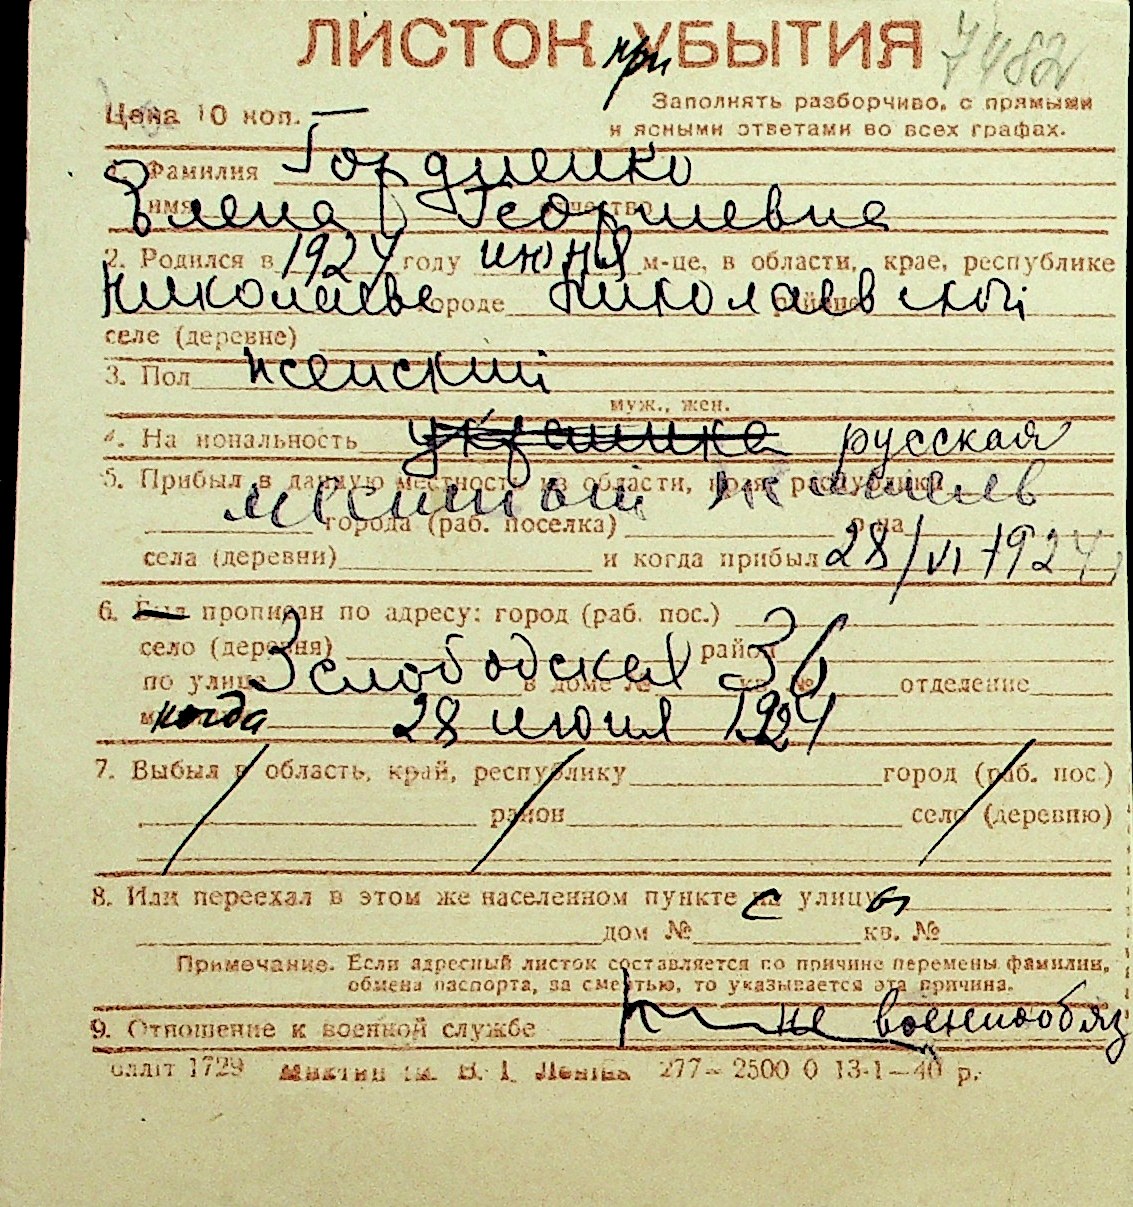 ЛИСТОК УБЫТИЯ
при
7482
Цена 10 коп. —
Заполнять разборчиво, с прямыми
и ясными ответами во всех графах.
1. Фамилия Гордиенко
имя Елена отчество Георгиевна
2. Родился в 1924 году июня м-це, в области, крае, республике
Николаеве городе Николаевской районе
селе (деревне)
3. Пол женский
муж., жен.
4. Национальность украинка русская
5. Прибыл в данную местность из области, края, республики
местный Николаев
города (раб. поселка) р-на
села (деревни) и когда прибыл 28/VI 1924
6. Был прописан по адресу: город (раб. пос.)
село (деревня) район
по улице 3 слободская в доме № 36 кв. № отделение
когда 28 июня 1924
7. Выбыл в область, край, республику город (раб. пос.)
район село (деревню)
8. Или переехал в этом же населенном пункте с улицы
дом № кв. №
Примечание. Если адресный листок составляется по причине перемены фамилии,
обмена паспорта, за смертью, то указывается эта причина.
9. Отношение к военной службе не военнообяз
1729 ім. В. І. Леніна 277—2500 0 13-1—40 р.